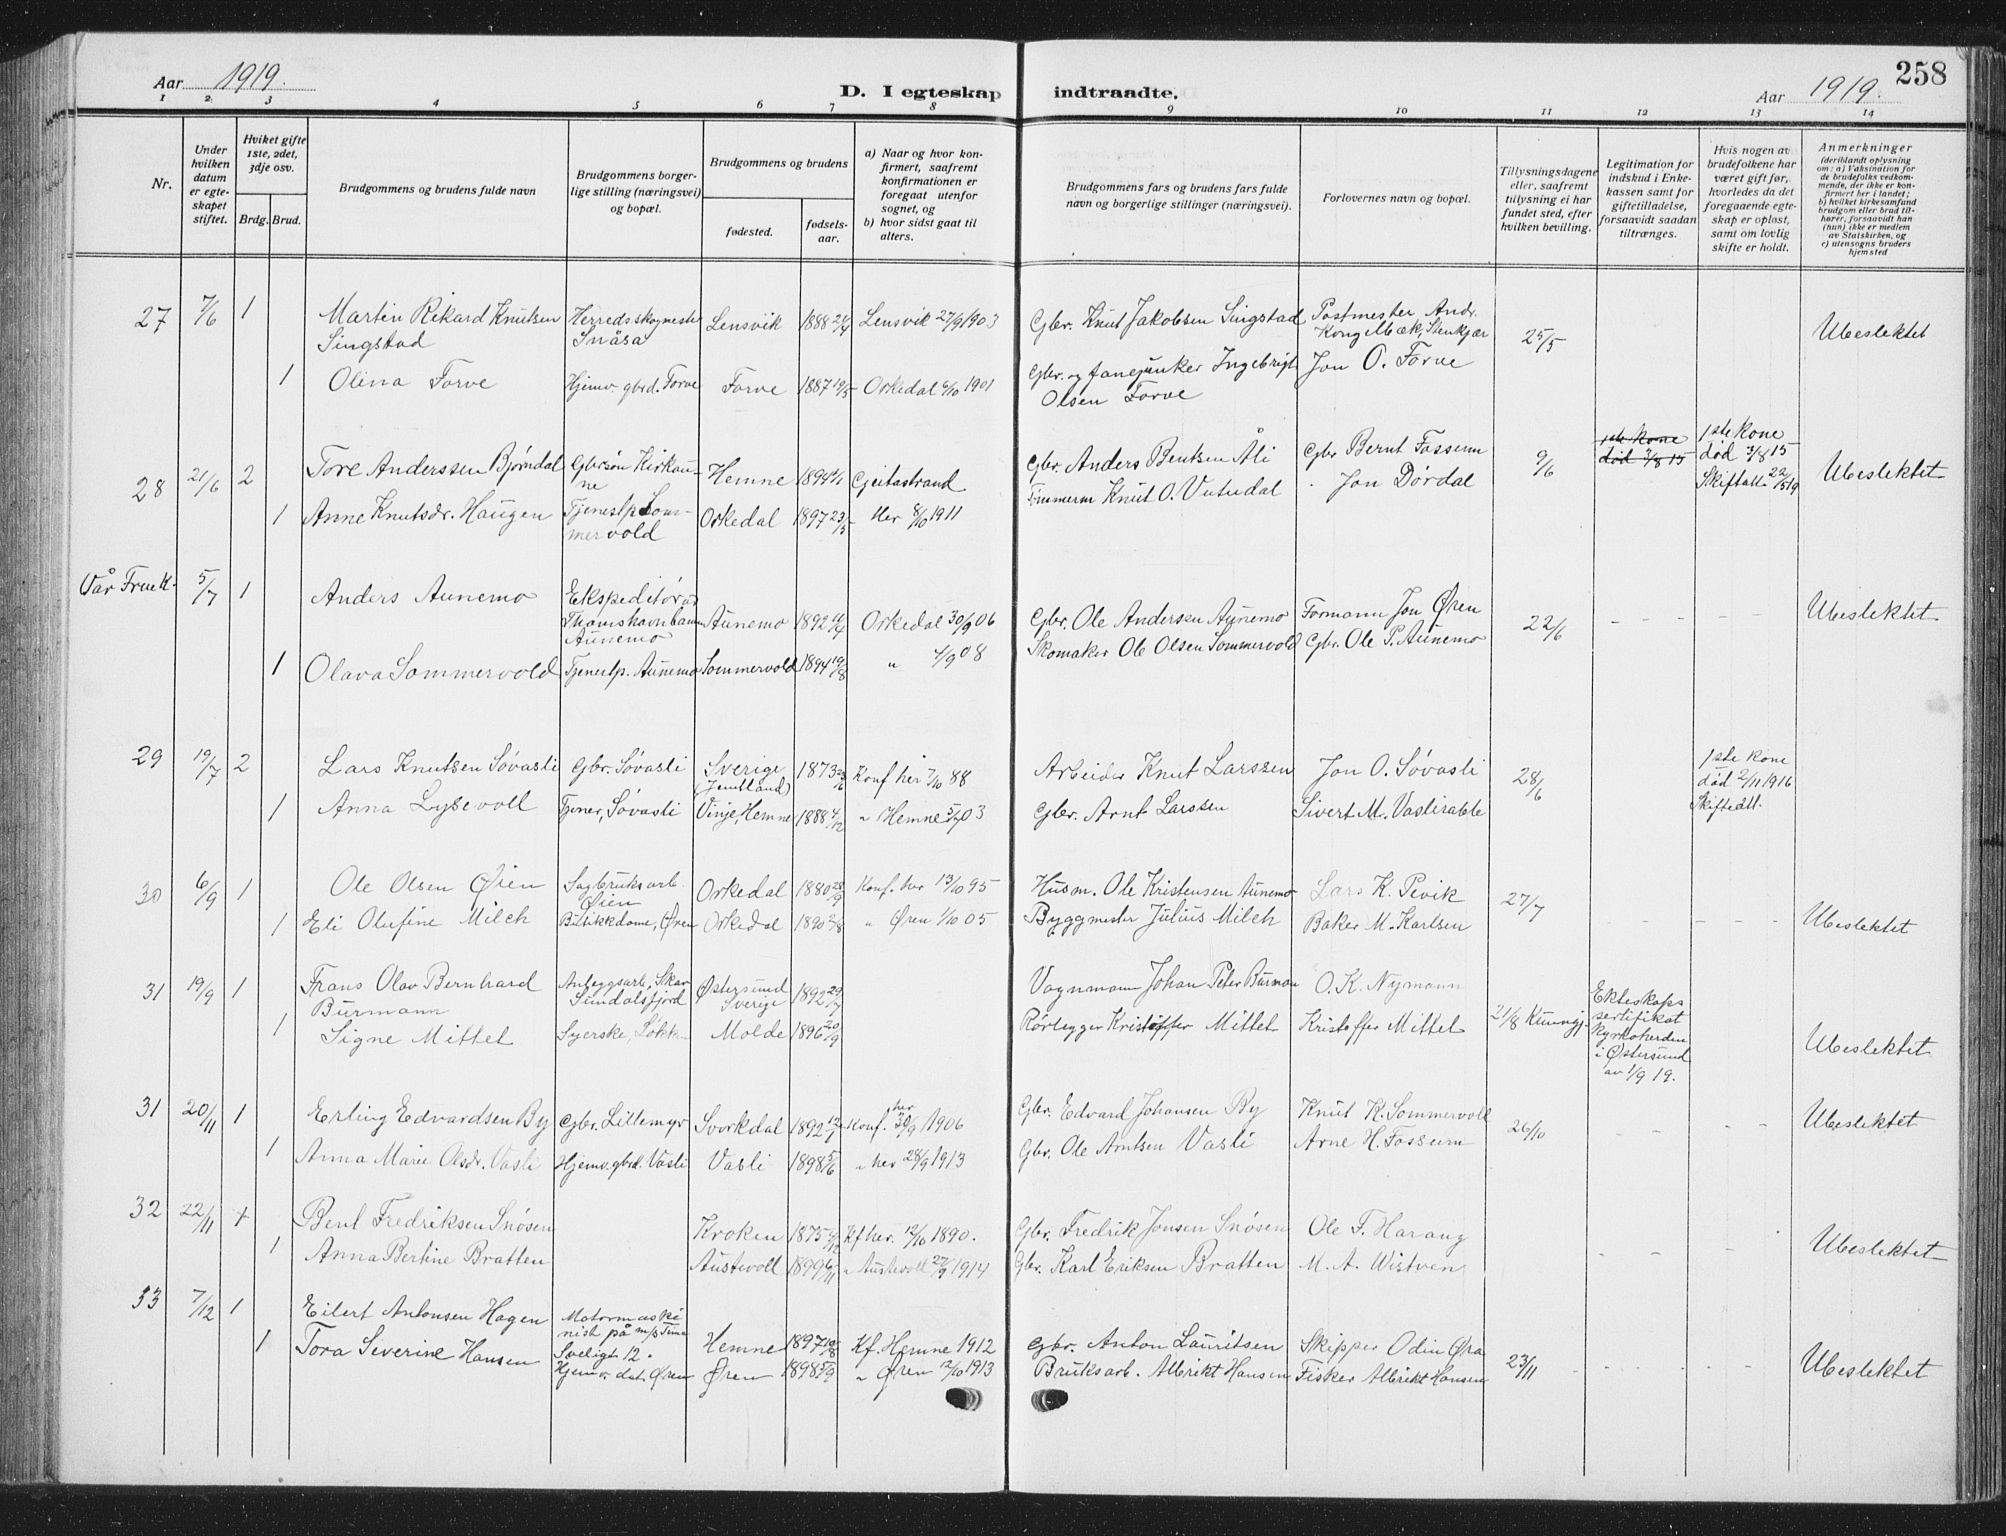 Aar 1919.
D. I egteskap indtraadte.
Aar 1919.
258
1 2 3 4 5 6 7 8 9 10 11 12 13 14
Nr.
Under hvilken datum er egteskapet stiftet.
Hviket gifte 1ste, 2det, 3dje osv.
Brdg. Brud.
Brudgommens og brudens fulde navn
Brudgommens borgerlige stilling (næringsvei) og bopæl.
Brudgommens og brudens
fødested.
fødselsaar.
a) Naar og hvor konfirmert, saafremt konfirmationen er foregaat utenfor sognet, og
b) hvor sidst gaat til alters.
Brudgommens fars og brudens fars fulde navn og borgerlige stillinger (næringsvei).
Forlovernes navn og bopæl.
Tillysningsdagene eller, saafremt tillysning ei har fundet sted, efter hvilken bevilling.
Legitimation for indskud i Enkekassen samt for giftetilladelse, forsaavidt saadan tiltrænges.
Hvis nogen av brudefolkene har været gift før, hvorledes da det foregaaende egteskap er opløst, samt om lovlig skifte er holdt.
Anmerkninger (deriblandt oplysning om: a) Vaksination for de brudefolks vedkommende, der ikke er konfirmert her i landet; b) hvilket kirkesamfund brudgom eller brud tilhører, forsaavidt han (hun) ikke er medlem av Statskirken, og c) utensogns bruders hjemsted
27 7/6 1 Martin Rikard Knutsen Singstad Herredsskogmester Snåsa Lensvik 1888 24/4 Lensvik 27/9 1903 Gbr. Knut Jakobsen Singstad Postmester Andr. Stenkjær 25/5 Ubeslektet
1 Olina Forve Hjemv. gbrd. Forve Forve 1887 19/5 Orkedal 6/10 1901 Gbr. og fanejunker Ingebrigt Olsen Forve Jon O. Forve
28 21/6 2 Tore Anderssen Bjørndal Gbrsøn Hemne 1894 Geitastrand Gbr. Anders Bentsen Åli Gbr Bernt Fossum 9/6 1ste kone død 3/8 15 1ste kone død 3/8 15 Skifteatt 22/5 19 Ubeslektet
1 Anne Knutsdr. Haugen Tjenestp Sommervold Orkedal 1897 23/5 Her 8/10 1911 Tømmerm Knut O. Jon Dørdal
Vår Frue K. 5/7 1 Anders Aunemo Ekspeditør Thamshavnbanen Aunemo Aunemo 1892 Orkedal 30/9 06 Gbr. Ole Andersen Aunemo Formann Jon Øren 22/6 - - - - - Ubeslektet
1 Olava Sommervold Tjenestp. Aunemo Sommervold 1894 19/8 " 4/9 08 Skomaker Ole Olsen Sommervold Gbr. Ole P. Aunemo
29 19/7 2 Lars Knutsen Søvasli Gbr. Søvasli Sverige (Jemtland) 1873 Konf her 7/10 88 Arbeider Knut Larssen Jon O. Søvasli 28/6 1ste kone død 2/11 1916 Skifteatt.
1 Anna Lysevoll Tjener, Søvasli Vinje, Hemne 1888 4/12 " Hemne 5/7 03 Gbr. Arnt Larssen Sivert M. Vaslirabbe
30 6/9 1 Ole Olsen Øien Sagbruksarb. Øien Orkedal 1880 Konf. her 13/10 95 Husm. Ole Kristensen Aunemo Lars K. Pevik 27/7 - - - - Ubeslektet
1 Eli Olufine Milch Butikkdame, Øren Orkedal 1890 " Øren 1/10 05 Byggmester Julius Milch Baker M. Karlsen
31 19/9 1 Frans Olav Bernhard Burmann Anleggsarb. Sundalsfjord Østersund Sverige 1892 29/7 Vognmann Johan Peter Burman O. K. Nymann 31/8 Kunngj. Ekteskaps sertifikat kyrkoherden i Østersund av 1/9 19. Ubeslektet
1 Signe Mittet Syerske, Løkken Molde 1896 20/9 Rørlegger Kristoffer Mittet Kristoffer Mittet
31 20/11 1 Erling Edvardsen By Gbr. Lillemyr Svorkdal 1892 12/1 Konf. her 30/9 1906 Gbr. Edvard Johansen By Knut K. Sommervoll 26/10 - - - - Ubeslektet
1 Anna Marie Olsdr. Vasli Hjemv. gbrd. Vasli Vasli 1898 5/6 " her 28/9 1913 Gbr. Ole Arntsen Vasli Arne H. Fossum
32 22/11 + Bent Fredriksen Snøsen Kroken 1875 Kf her. 12/10 1890. Gbr. Fredrik Jonsen Snøsen Ole F. Harang - - - - Ubeslektet
1 Anna Bertine Bratten Austevoll 1899 6/11 " Austevoll 27/9 1914 Gbr. Karl Eriksen Bratten M. A. Wistven
33 7/12 1 Eilert Antonsen Hagen Motormaskinist på m/s Hemne 1897 Kf. Hemne 1912 Gbr. Anton Lauritsen Skipper Odin Øra 23/11 Ubeslektet
1 Tora Severine Hansen Hjemv. dat. Øren Øren 1898 5/9 " Øren 12/10 1913 Bruksarb. Albrikt Hansen Fisker Albrikt Hansen